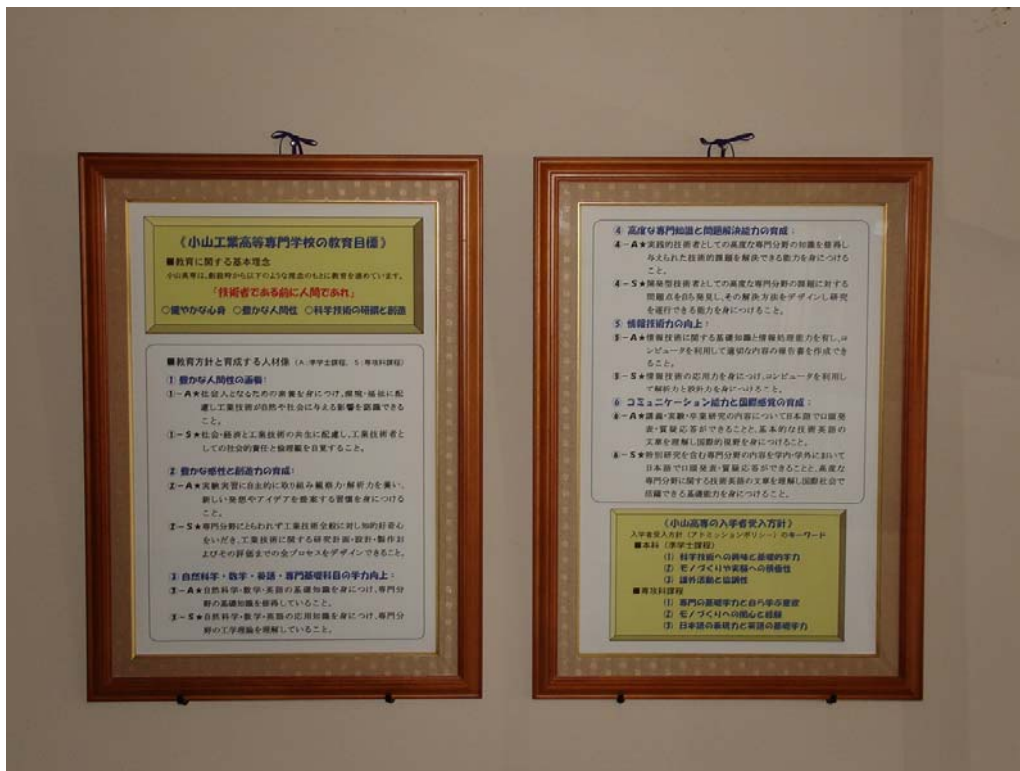 《小山工業高等専門学校の教育目標》
■教育に関する基本理念
小山高専は、創設時から以下のような理念のもとに教育を進めています。
「技術者である前に人間であれ」
○健やかな心身 ○豊かな人間性 ○科学技術の研鑽と創造
■教育方針と育成する人材像（A：準学士課程、S：専攻科課程）
① 豊かな人間性の涵養：
①－A★社会人となるための素養を身につけ、環境・福祉に配
慮し工業技術が自然や社会に与える影響を認識できる
こと。
①－S★社会・経済と工業技術の共生に配慮し、工業技術者と
しての社会的責任と倫理観を自覚すること。
② 豊かな感性と創造力の育成：
②－A★実験実習に自主的に取り組み観察力・解析力を養い、
新しい発想やアイデアを提案する習慣を身につける
こと。
②－S★専門分野にとらわれず工業技術全般に対し知的好奇心
をいだき、工業技術に関する研究計画・設計・製作お
よびその評価までの全プロセスをデザインできること。
③ 自然科学・数学・英語・専門基礎科目の学力向上：
③－A★自然科学・数学・英語の基礎知識を身につけ、専門分
野の基礎知識を修得していること。
③－S★自然科学・数学・英語の応用知識を身につけ、専門分
野の工学理論を理解していること。
④ 高度な専門知識と問題解決能力の育成：
④－A★実践的技術者としての高度な専門分野の知識を修得し
与えられた技術的課題を解決できる能力を身につける
こと。
④－S★開発型技術者としての高度な専門分野の課題に対する
問題点を自ら発見し、その解決方法をデザインし研究
を遂行できる能力を身につけること。
⑤ 情報技術力の向上：
⑤－A★情報技術に関する基礎知識と情報処理能力を有し、コ
ンピュータを利用して適切な内容の報告書を作成でき
ること。
⑤－S★情報技術の応用力を身につけ、コンピュータを利用し
て解析力と設計力を身につけること。
⑥ コミュニケーション能力と国際感覚の育成：
⑥－A★講義・実験・卒業研究の内容について日本語で口頭発
表・質疑応答ができることと、基本的な技術英語の
文章を理解し国際的視野を身につけること。
⑥－S★特別研究を含む専門分野の内容を学内・学外において
日本語で口頭発表・質疑応答ができることと、高度な
専門分野に関する技術英語の文章を理解し国際社会で
活躍できる基礎能力を身につけること。
《小山高専の入学者受入方針》
入学者受入方針（アドミッションポリシー）のキーワード
■本科（準学士課程）
(1) 科学技術への興味と基礎的学力
(2) モノづくりや実験への積極性
(3) 課外活動と協調性
■専攻科課程
(1) 専門の基礎学力と自ら学ぶ意欲
(2) モノづくりへの関心と経験
(3) 日本語の表現力と英語の基礎学力